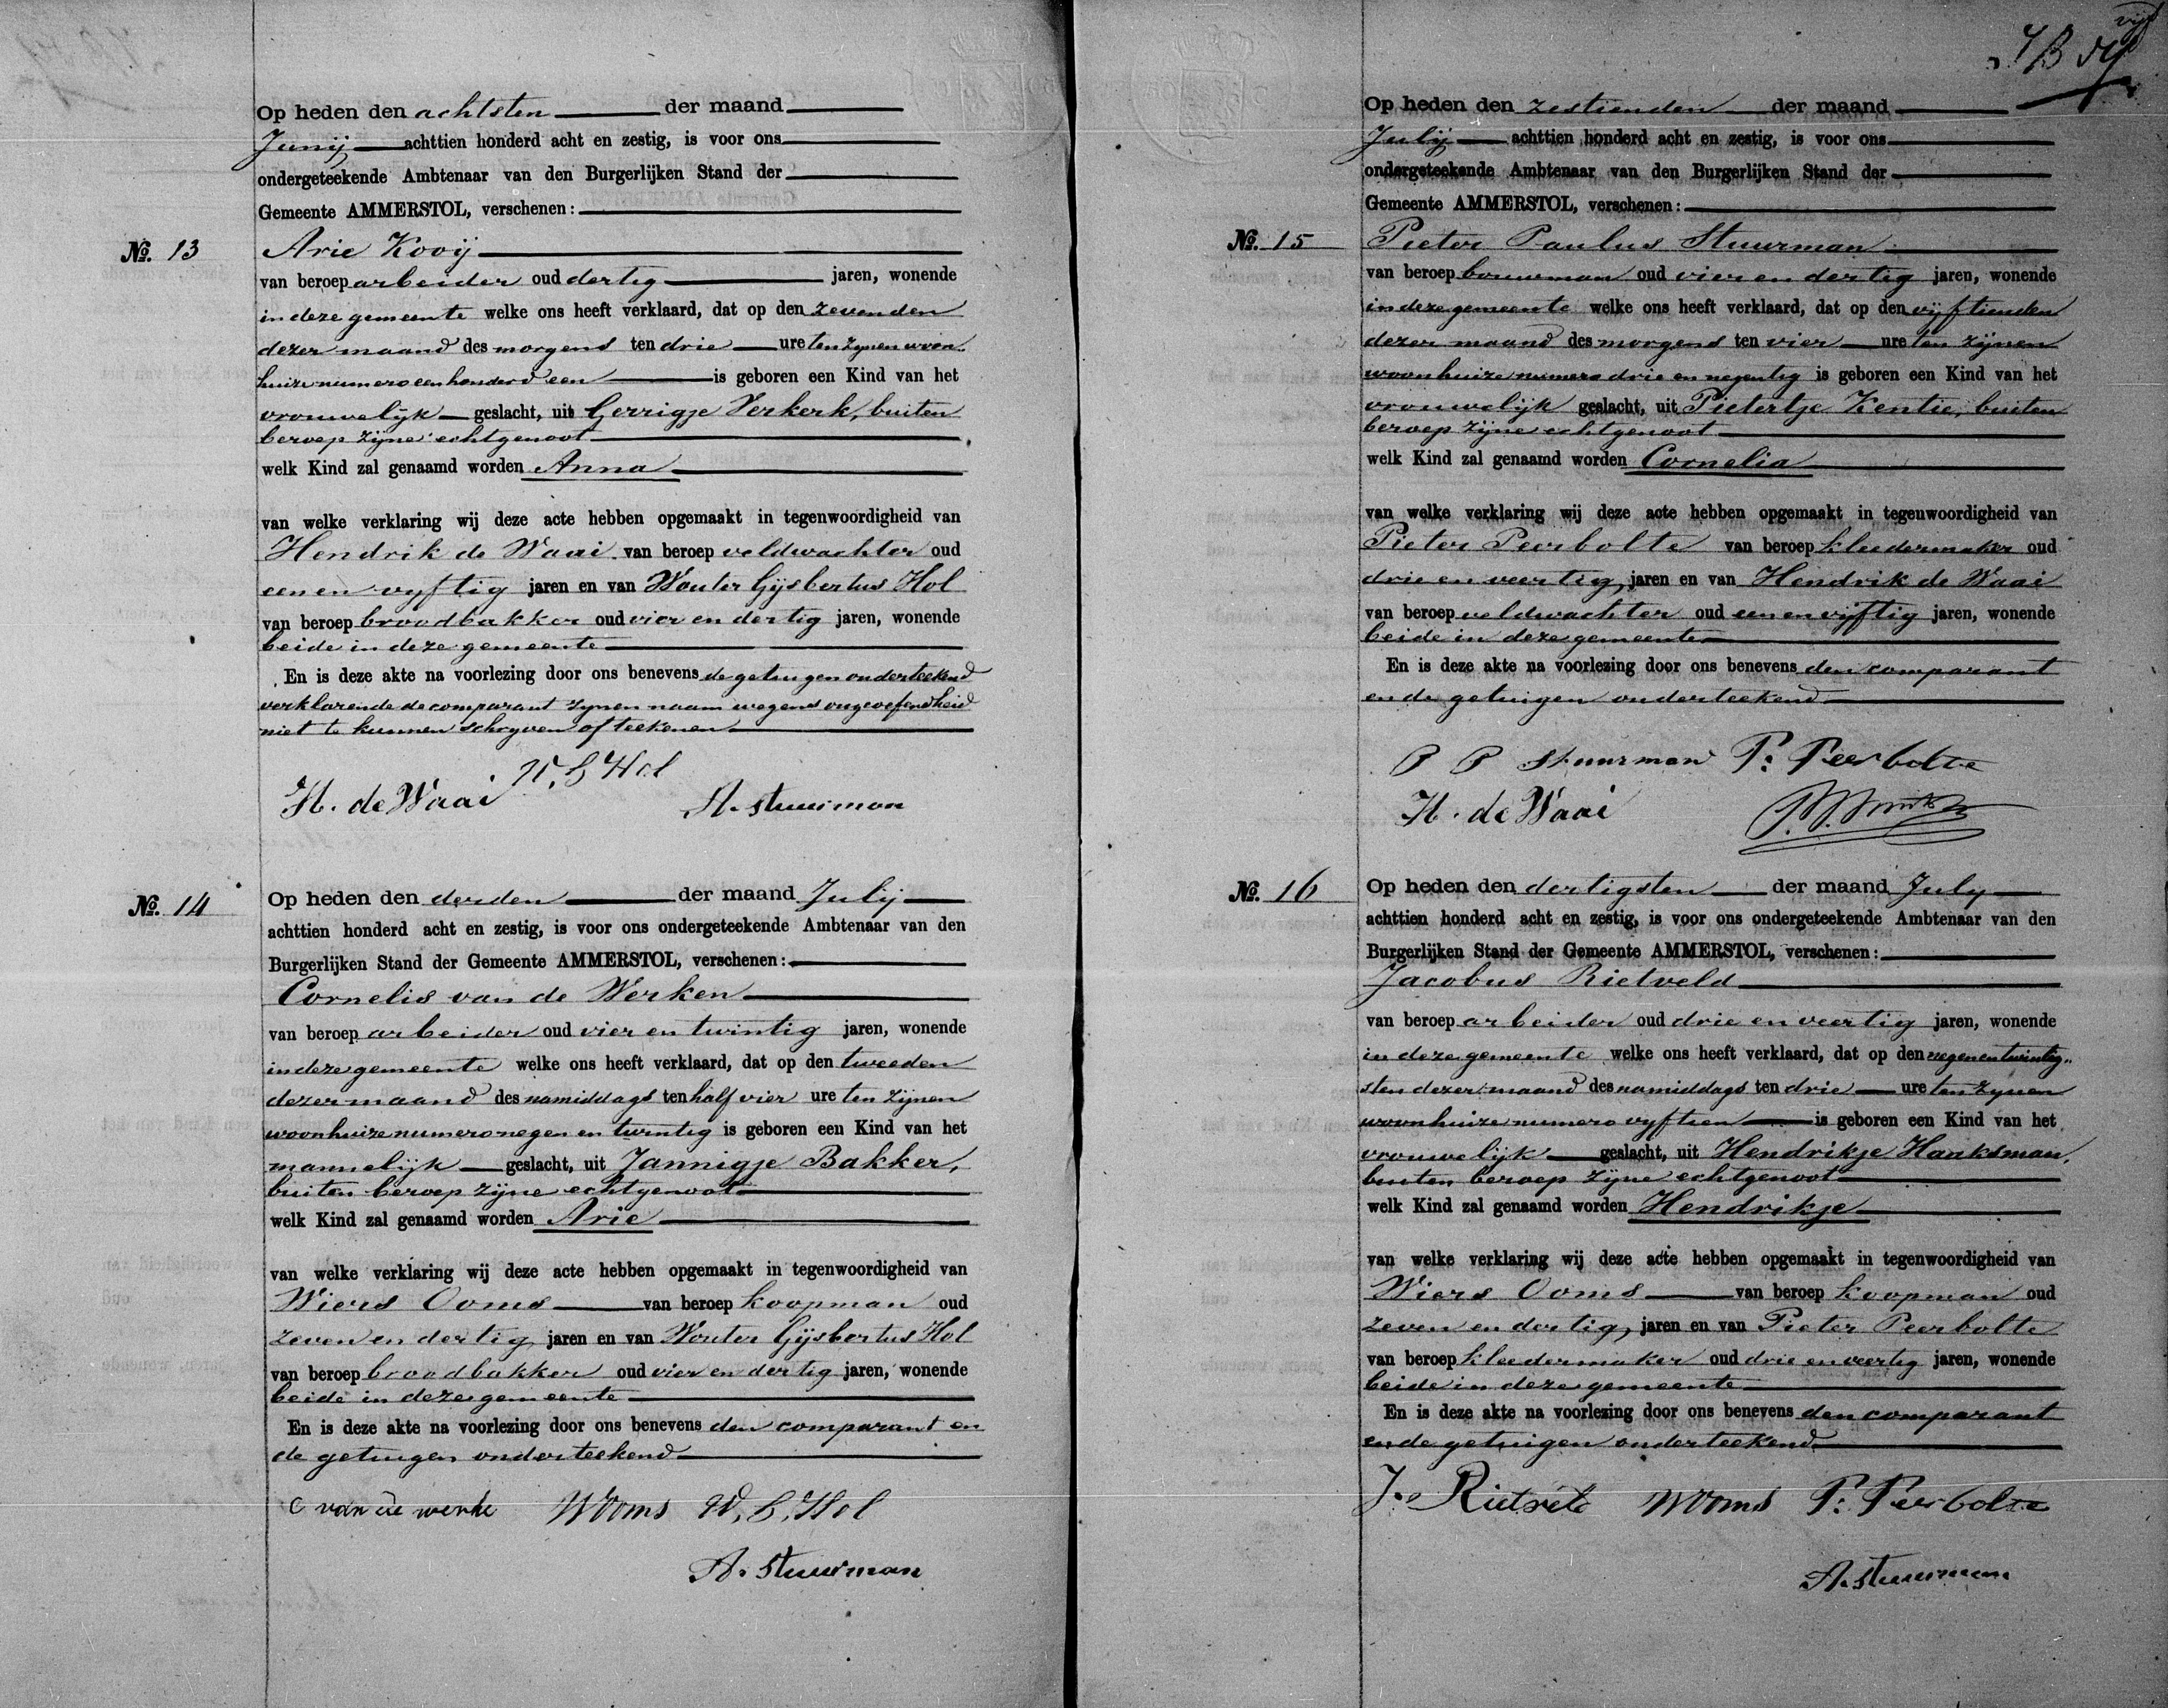 Op heden den achtsten der maand
Junij achttien honderd acht en zestig, is voor ons
ondergeteekende Ambtenaar van den Burgerlijken Stand der
Gemeente AMMERSTOL, verschenen:
No. 13 Arie Kooij
van beroep arbeider oud dertig jaren, wonende
in deze gemeente welke ons heeft verklaard, dat op den zevenden
dezer maand des morgens ten drie ure ten zynen woon„
huize numero een honderd een is geboren een Kind van het
vrouwelijk geslacht, uit Gerrigje Verkerk, buiten
beroep zijne echtgenoot
welk Kind zal genaamd worden Anna
van welke verklaring wij deze acte hebben opgemaakt in tegenwoordigheid van
Hendrik de Waai van beroep veldwachter oud
een en vyftig jaren en van Wouter Gijsbertus Hol
van beroep broodbakker oud vier en dertig jaren, wonende
beide in deze gemeente
En is deze akte na voorlezing door ons benevens de getuigen onderteekend
verklarende de comparant zynen naam wegens ongeoefendheid
niet te kunnen schryven of teekenen
H. de Waai W. G Hol
A. Stuurman
No. 14 Op heden den derden der maand Julij
achttien honderd acht en zestig, is voor ons ondergeteekende Ambtenaar van den
Burgerlijken Stand der Gemeente AMMERSTOL, verschenen:
Cornelis van de Werken
van beroep arbeider oud vier en twintig jaren, wonende
in deze gemeente welke ons heeft verklaard, dat op den tweeden
dezer maand des namiddags ten half vier ure ten zijnen
woonhuize numero negen en twintig is geboren een Kind van het
mannelijk geslacht, uit Jannigje Bakker,
buiten beroep zijne echtgenoot
welk Kind zal genaamd worden Arie
van welke verklaring wij deze acte hebben opgemaakt in tegenwoordigheid van
Wiers Ooms van beroep koopman oud
zeven en dertig jaren en van Wouter Gijsbertus Hol
van beroep broodbakker oud vier en dertig jaren, wonende
beide in deze gemeente
En is deze akte na voorlezing door ons benevens den comparant en
de getuigen onderteekend
C van de werke WOoms W. G. Hol
A. Stuurman
vijf
Op heden den zestienden der maand
Julij achttien honderd acht en zestig, is voor ons
ondergeteekende Ambtenaar van den Burgerlijken Stand der
Gemeente AMMERSTOL, verschenen:
No. 15 Pieter Paulus Stuurman
van beroep bouwman oud vier en dertig jaren, wonende
in deze gemeente welke ons heeft verklaard, dat op den vijftienden
dezer maand des morgens ten vier ure ten zijnen
woonhuize numero drie en negentig is geboren een Kind van het
vrouwelijk geslacht, uit Pietertje Kentie, buiten
beroep zijne echtgenoot
welk Kind zal genaamd worden Cornelia
van welke verklaring wij deze acte hebben opgemaakt in tegenwoordigheid van
Pieter Peerbolte van beroep kleedermaker oud
drie en veertig jaren en van Hendrik de Waai
van beroep veldwachter oud een en vijftig jaren, wonende
beide in deze gemeente
En is deze akte na voorlezing door ons benevens den comparant
en de getuigen onderteekend
P P Stuurman P: Peerbolte
H. de Waai
No. 16 Op heden den dertigsten der maand July
achttien honderd acht en zestig, is voor ons ondergeteekende Ambtenaar van den
Burgerlijken Stand der Gemeente AMMERSTOL, verschenen:
Jacobus Rietveld
van beroep arbeider oud drie en veertig jaren, wonende
in deze gemeente welke ons heeft verklaard, dat op den negenentwintig„
sten dezer maand des namiddags ten drie ure ten zynen
woonhuize numero vyftien is geboren een Kind van het
vrouwelijk geslacht, uit Hendrikje Haaksman,
buiten beroep zijne echtgenoot
welk Kind zal genaamd worden Hendrikje
van welke verklaring wij deze acte hebben opgemaakt in tegenwoordigheid van
Wiers Ooms van beroep koopman oud
zeven en dertig jaren en van Pieter Peerbolte
van beroep kleedermaker oud drie en veertig jaren, wonende
beide in deze gemeente
En is deze akte na voorlezing door ons benevens den comparant
en de getuigen onderteekend
WOoms P: Peerbolte
A. Stuurman